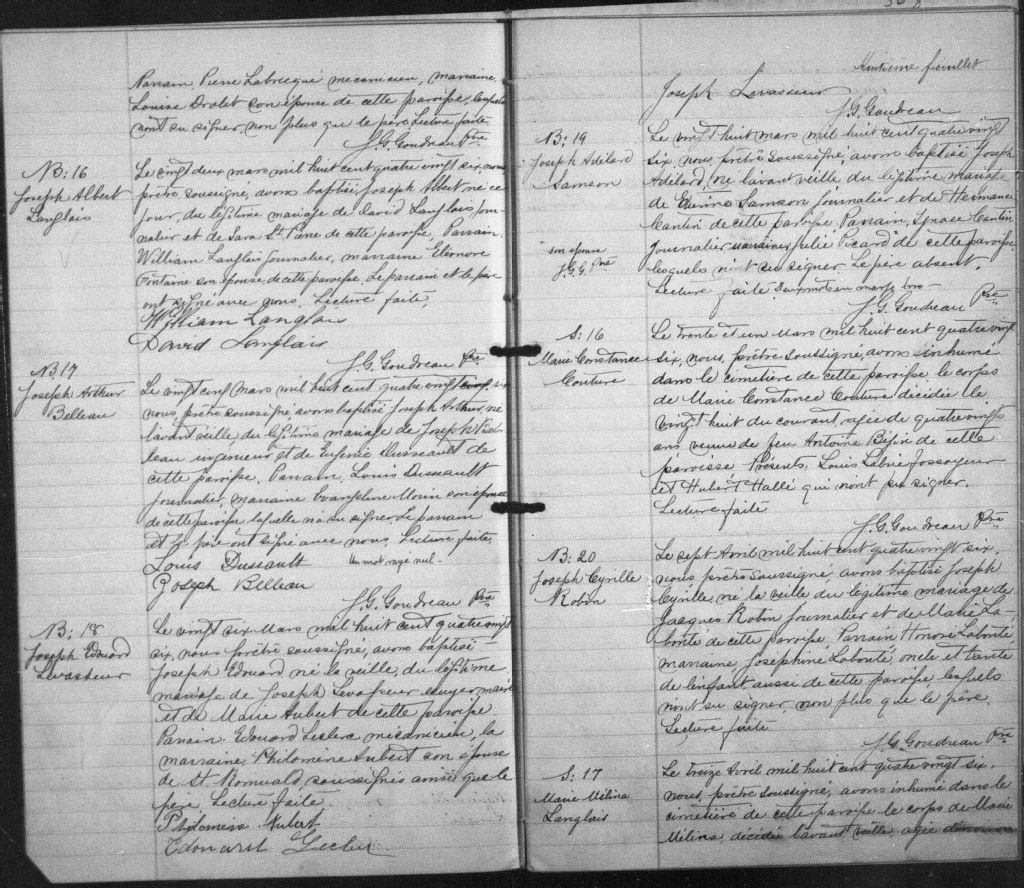 Parrain Pierre Labrecque mecanicien, marraine
Louise Drolet son épouse de cette paroisse, lesquels
n'ont su signer, non plus que le père Lecture faite
J. G. Goudreau Ptre
B: 16
Joseph Albert
Langlais
Le vingt deux mars mil huit cent quatre vingt six, nous
prêtre soussigné, avons baptisé Joseph Albert né ce
jour, du légitime mariage de David Langlais jour
nalier et de Sara St Pierre de cette paroisse. Parrain
William Langlais journalier, marraine Eleonore
Fontaine son épouse de cette paroisse. Le parrain et le père
ont signé avec nous. Lecture faite.
William Langlais
David Langlais
J. G. Goudreau Ptre
B. 17
Joseph Arthur
Belleau
Le vingt cinq mars mil huit cent quatre vingt cinq, six
nous, prêtre soussigné avons baptisé Joseph Arthur, né
l'avant veille du légitime mariage de Joseph Bel
leau ingenieur et de Eugénie Dussault de
cette paroisse. Parrain, Louis Dusseault
journalier, marraine Evangeline Morin son épouse
de cette paroisse laquelle n'a su signer. Le parrain
et le père ont signé avec nous, Lecture faite,
Louis Dussault Un mot rayé nul-
Joseph Belleau
J. G. Goudreau Ptre
B: 18
Joseph Edouard
Levasseur
Le vingt six Mars mil huit cent quatre vingt
six, nous prêtre soussigné, avons baptisé
Joseph Edouard né la veille, du légitime
mariage de Joseph Levasseur
et de Marie Aubert de cette paroisse
Parrain Edouard Leclerc mécanicien, la
marraine Philomène Aubert son épouse
de St. Romuald, soussignés ainsi que le
père Lecture faite
Philomène Aubert
Edouard Lecler
308
Huitième feuillet
Joseph Levasseur
J. G. Goudreau
B: 19
Joseph Adélard
Samson
Le vingt huit mars mil huit cent quatre vingt
six, nous, prêtre soussigné, avons baptisé Joseph
Adélard, né l'avant veille du légitime mariage
de Samson journalier et de Hermance
Cantin de cette paroisse. Parrain, Ignace Cantin
journalier marraine, Julie Picard de cette paroisse
son épouse
J. G. G. Ptre
lesquels n'ont su signer. Le père absent.
Lecture faite Deux mots en marge bons-
J. G. Goudreau Ptre
S: 16
Marie Constance
Couture
Le trente et un Mars mil huit cent quatre vingt
six, nous, prêtre soussigné, avons inhumé
dans le cimetière de cette paroisse le corps
de Marie Constance Couture décédée le
vingt huit du courant, agée de quatre vingts
ans veuve de feu Antoine de cette
paroisse Présents, Louis Labrie fossoyeur
et Hubert Hallé qui n'ont su signer.
Lecture faite
J. G. Goudreau Ptre
B: 20
Joseph Cyrille
Robin
Le sept Avril mil huit cent quatre vingt six,
nous prêtre soussigné, avons baptisé Joseph
Cyrille, né la veille du légitime mariage de
Jacques Robin journalier et de Marie La-
bonté de cette paroisse. Parrain Honoré Labonté,
marraine, Josephine Labonté, oncle et tante
de l'enfant aussi de cette paroisse lesquels
n'ont su signer, non plus que le père.
Lecture faite
J. G. Goudreau Ptre
S: 17
Marie Mélina
Langlais
Le treize Avril mil huit cent quatre vingt six.
nous, prêtre soussigné, avons inhumé dans le
cimetière de cette paroisse le corps de Marie
Mélina, décédée l'avant veille, agée d'environ